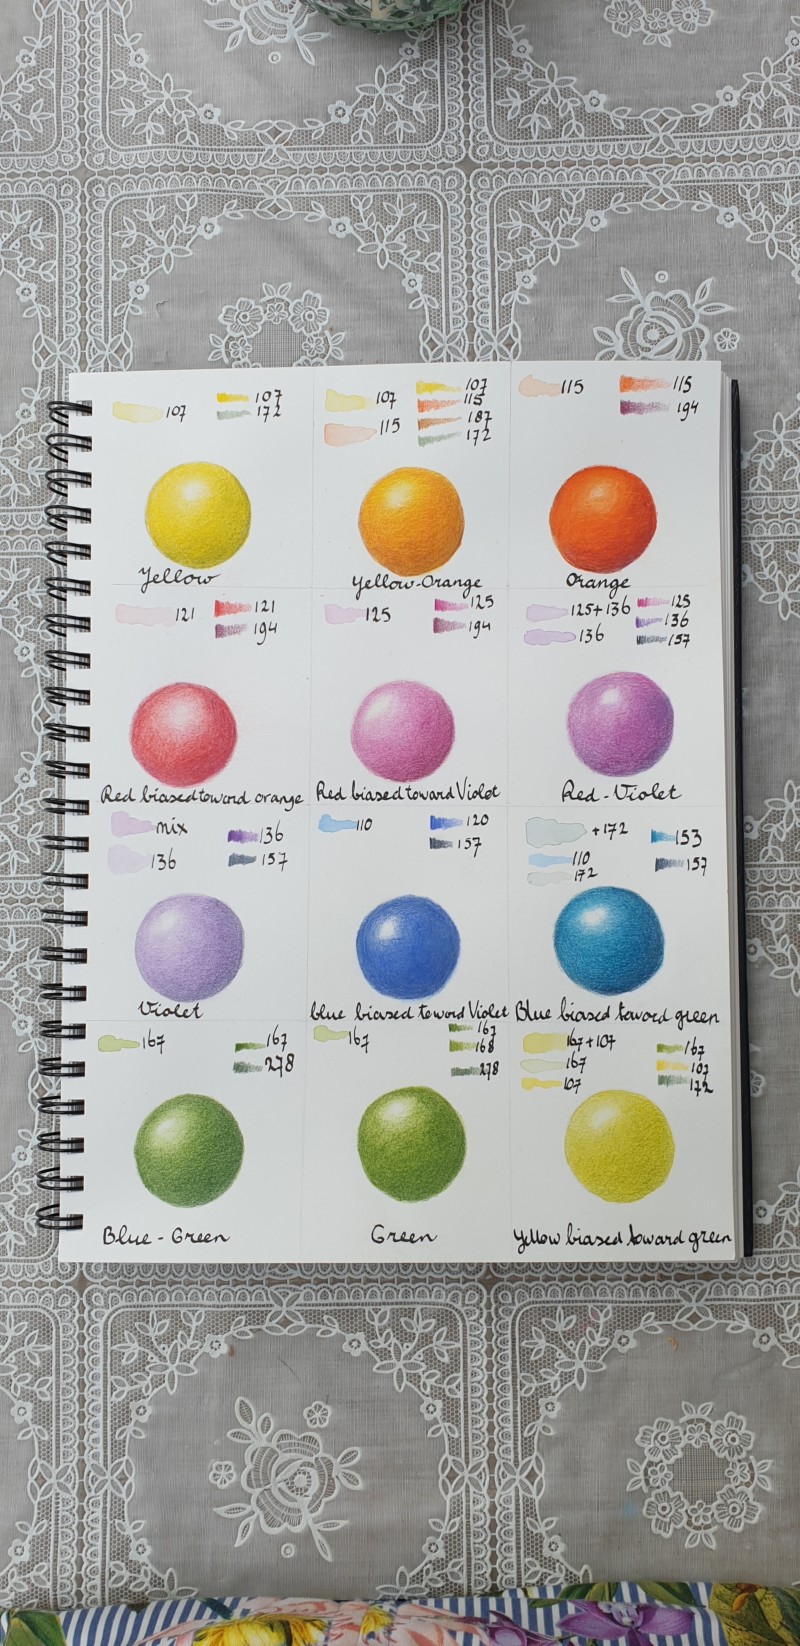 107
107
172
Yellow
107
115
107
115
187
172
Yellow-Orange
115
115
194
Orange
121
121
194
Red biased toward orange
125
125
194
Red biased toward Violet
125+136
136
125
136
157
Red-Violet
mix
136
136
157
Violet
110
120
157
blue biased toward Violet
+172
110
172
153
157
Blue biased toward green
167
167
278
Blue-Green
167
167
168
278
Green
167+107
167
107
167
107
172
Yellow biased toward green